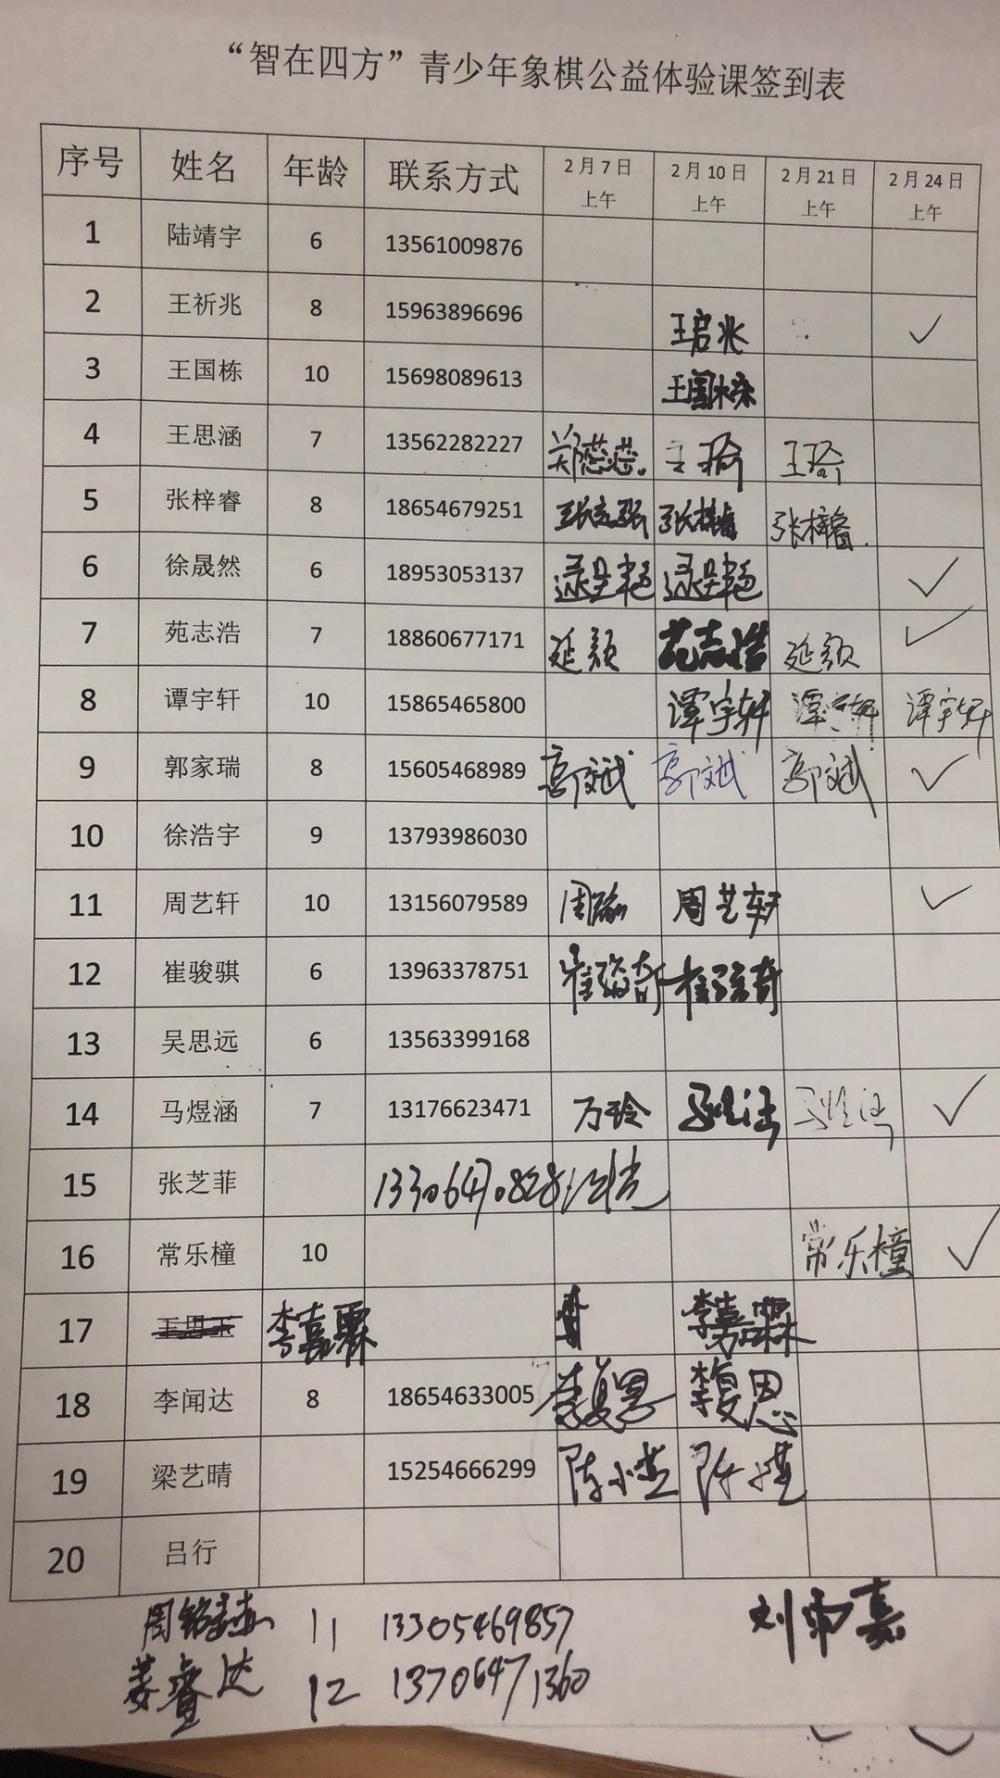 “智在四方”青少年象棋公益体验课签到表
序号 姓名 年龄 联系方式 2月7日上午 2月10日上午 2月21日上午 2月24日上午
1 陆靖宇 6 13561009876
2 王祈兆 8 15963896696 王启兆 ✓
3 王国栋 10 15698089613 王国栋
4 王思涵 7 13562282227 郑蕊蕊 王瑜 王瑜
5 张梓睿 8 18654679251 张梓睿 张梓睿
6 徐晟然 6 18953053137 ✓
7 苑志浩 7 18860677171 延颖 苑志浩 延颖 ✓
8 谭宇轩 10 15865465800 谭宇轩 谭宇轩 谭宇轩
9 郭家瑞 8 15605468989 郭斌 郭斌 郭斌 ✓
10 徐浩宇 9 13793986030
11 周艺轩 10 13156079589 周瑜 周艺轩 ✓
12 崔骏骐 6 13963378751 崔骏奇 崔骏奇
13 吴思远 6 13563399168
14 马煜涵 7 13176623471 万玲 ✓
15 张芝菲 13306470828
16 常乐橦 10 常乐橦 ✓
17 李嘉霖 李嘉霖
18 李闻达 8 18654633005 李复恩 李复恩
19 梁艺晴 15254666299
20 吕行
11 13305469857 刘雨嘉
姜睿达 12 13706471360